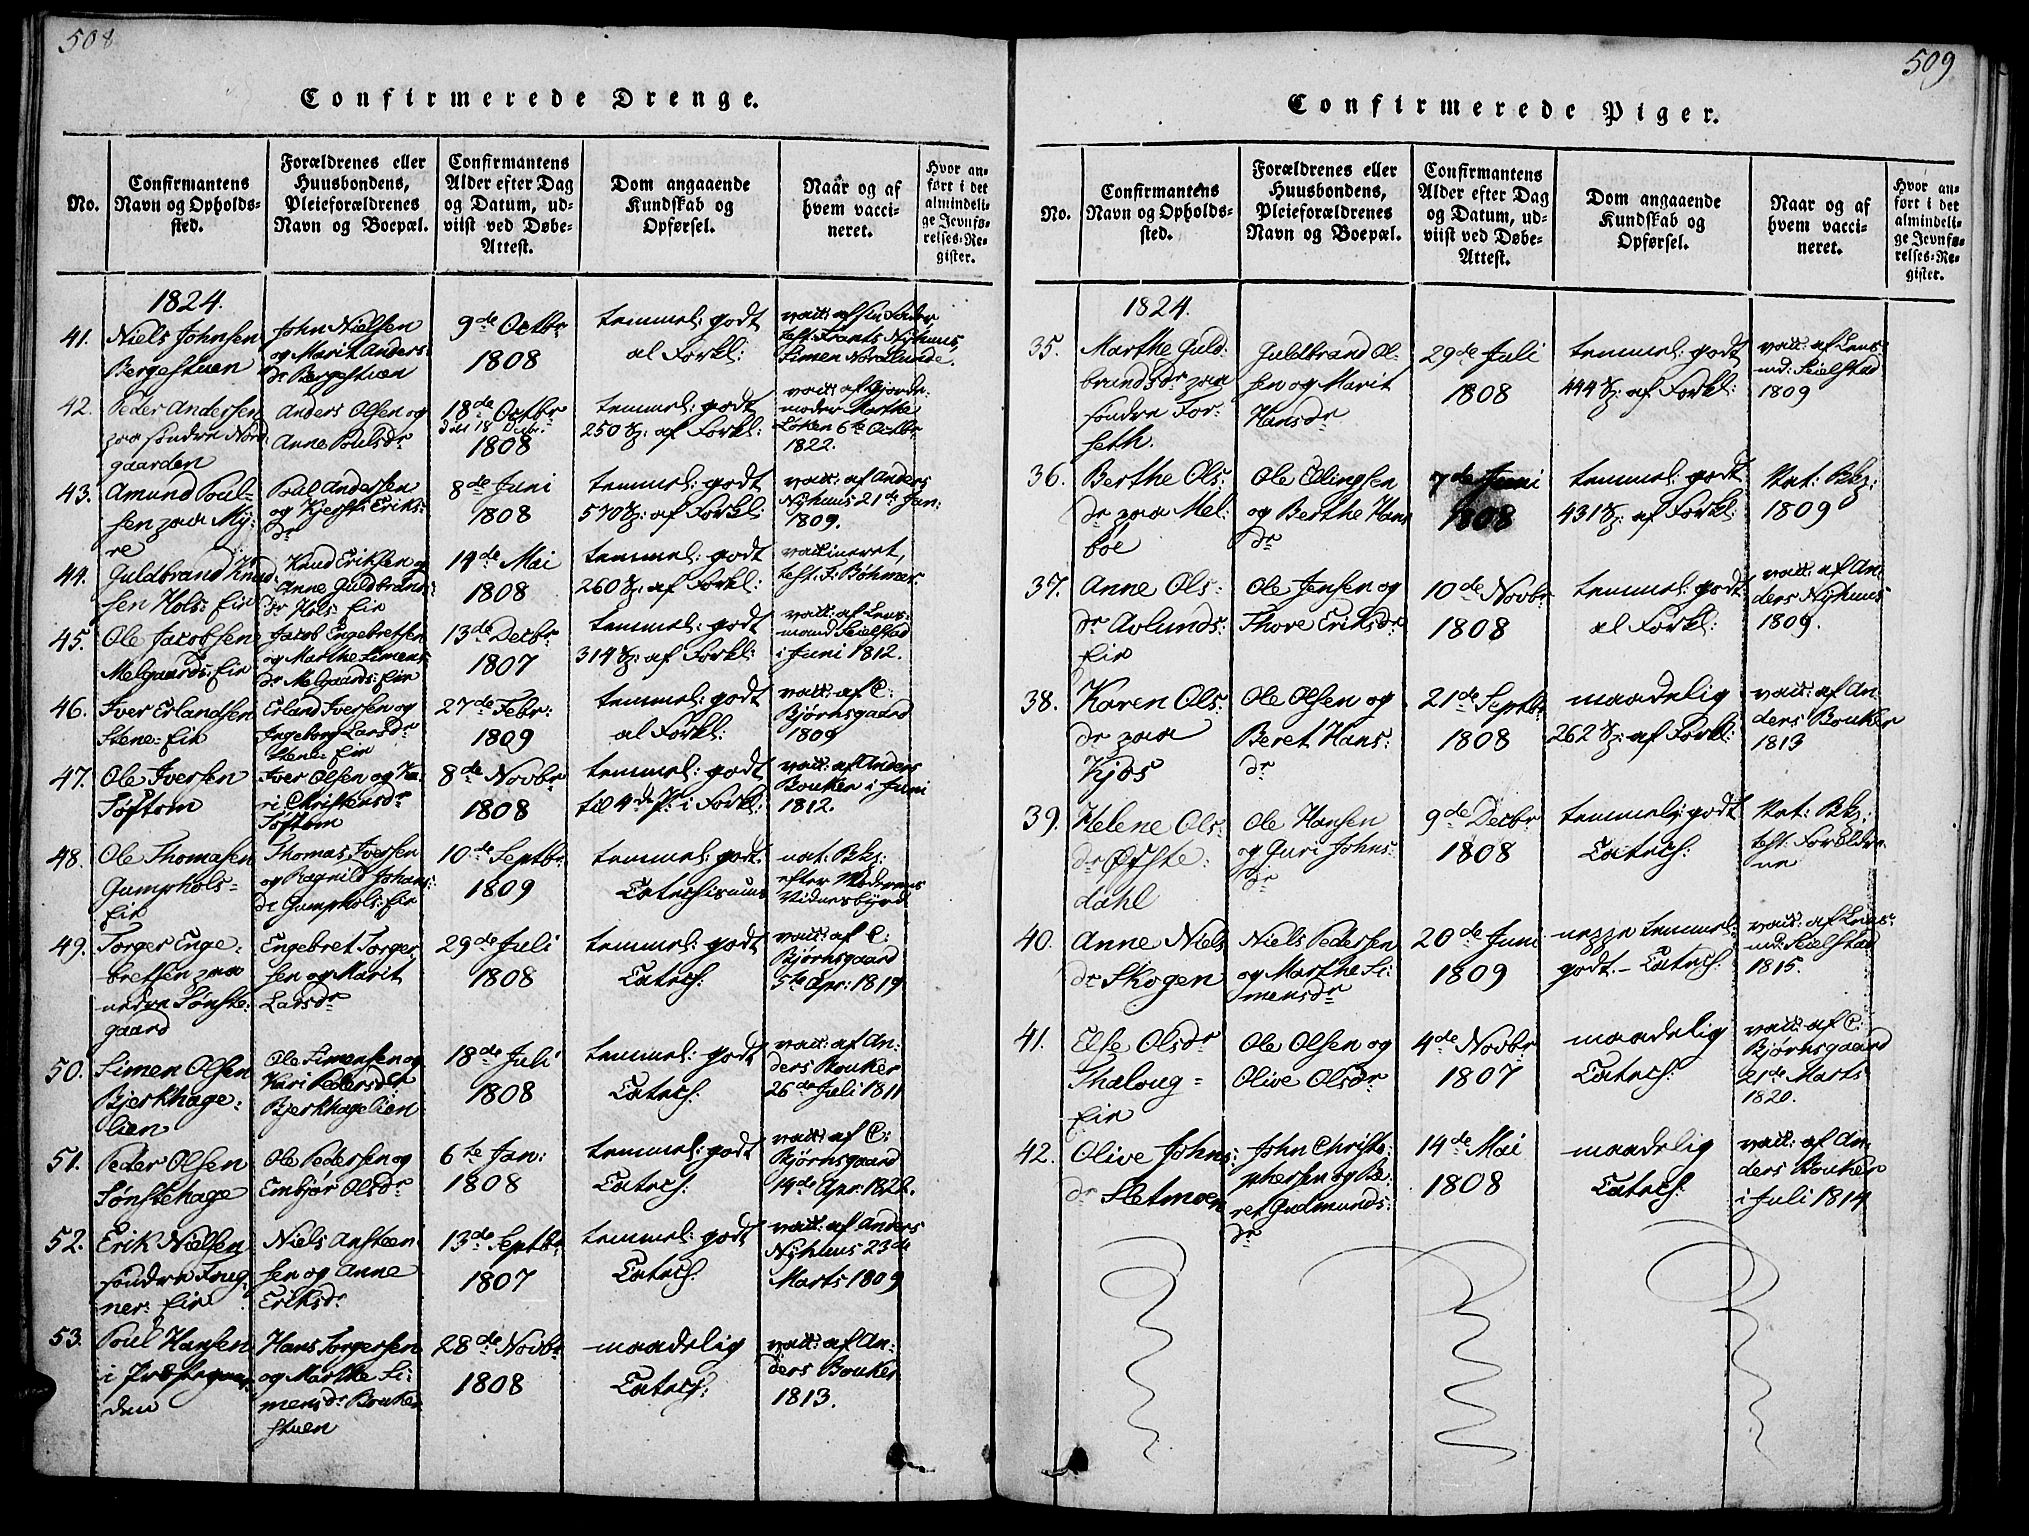 508
Confirmerede Drenge.
No.
Confirmantens
Navn og Opholds-
sted.
Forældrenes eller
Huusbondens,
Pleieforældrenes
Navn og Boepæl.
Confirmantens
Alder efter Dag
og Datum, ud-
viist ved Døbe-
Attest.
Dom angaaende
Kundskab og
Opførsel.
Naar og af
hvem vacci-
neret.
Hvor an-
ført i det
almindeli-
ge Jevnfø-
relses-Re-
gister.
1824.
41.
Niels Johnsen
Bergestuen
John Nielsen
og Marit Anders:
dr Bergestuen
9de Octbr
1808
temmel: godt
al Forkl:
vacc: af sin Fader
test: Frants Nyhuus,
Simen Nordlunde.
42.
Peder Andersen
paa søndre Nord
gaarden
Anders Olsen og
Anne Poulsdr
18de Octbr
1808
temmel: godt
250 Sp: af Forkl:
vacc: af Gjorde-
moder Marthe
Løken 6te Octbr
1822.
43.
Amund Poul-
sen paa My-
re
Poul Andersen
og Kjersti Eriks:
dr
8de Juni
1808
temmel: godt
570 Sp: af Forkl:
vacc: af Anders
Nyhuus 21de Jan:
1809.
44.
Guldbrand Knud
sen Hols: Eie
Knud Eriksen og
Anne Guldbrands:
dr Hols: Eie
14de Mai
1808
temmel: godt
260 Sp: af Forkl:
vaccineret,
test: J: Böhmer
45.
Ole Jacobsen
Melgaards: Eie
Jacob Engebretsen
og Marthe Simens:
dr Melgaards: Eie
13de Decbr
1807
temmel: godt
314 Sp: af Forkl:
vacc: af Lens-
mand Seielstad
i Juni 1812.
46.
Iver Erlandsen
Stene: Eie
Erland Iversen og
Ingeborg Larsdr
Stene: Eie
27de Febr:
1809
temmel: godt
al Forkl:
vacc: af C:
Bjørnsgaard
1809
47.
Ole Iversen
Toftom
Iver Olsen og Ka-
ri Christensdr
Toftom
8de Novbr
1808
temmel: godt
til 4de P: i Forkl:
vacc: af Anders
Bouker i Juni
1812.
48.
Ole Thomasen
Gumphols-
Eie
Thomas Iversen
og Ragnild Johans:
dr Gumphols: Eie
10de Septbr
1809
temmel: godt.
Catechismus
nat: Bkp:
efter Moderens
Vidnesbyrd
49.
Torger Enge-
bretsen paa
nedre Sønste-
gaard
Engebret Torger
sen og Marit
Larsdr
29de Juli
1808
temmel: godt
Catech:
vacc: af C:
Bjørnsgaard
5te Apr: 1819
50.
Simen Olsen
Bjerkhage-
lien
Ole Simensen og
Kari Pedersdr
Bjerkhagelien
18de Juli
1808
temmel: godt
Catech:
vacc: af An-
ders Bouker
26de Juli 1811
51.
Peder Olsen
Sønstehage
Ole Pedersen og
Embjør Olsdr
6te Jan:
1808
temmel: godt
Catech:
vacc: af C:
Bjørnsgaard
14de Apr: 1822.
52.
Erik Nielsen
søndre Foug-
ner: Eie
Niels Ansteen
sen og Anne
Eriksdr
13de Septbr
1807
temmel: godt
Catech:
vacc: af Anders
Nyhuus 23de
Marts 1809
53.
Poul Hansen
i Præstegaar-
den
Hans Torgersen
og Marthe Si-
mensdr Bouker
stuen
28de Novbr
1808
maadelig
Catech:
vacc: af An-
ders Bouker
1813.
509
Confirmerede Piger.
No.
Confirmantens
Navn og Opholds-
sted.
Forældrenes eller
Huusbondens,
Pleieforældrenes
Navn og Boepæl.
Confirmantens
Alder efter Dag
og Datum, ud-
viist ved Døbe-
Attest.
Dom angaaende
Kundskab og
Opførsel.
Naar og af
hvem vacci-
neret.
Hvor an-
ført i det
almindeli-
ge Jevnfø-
relses-Re-
gister.
1824.
35.
Marthe Guld-
brandsdr paa
søndre For-
seth.
Guldbrand Ol-
sen og Marit
Hansdr
29de Juli
1808
temmel: godt
444 Sp: af Forkl:
vacc: af Lens-
md: Seielstad
1809
36.
Berthe Ols:
dr paa Mel-
boe
Ole Ellingsen
og Berthe Hans
dr
7de Juni
1808
temmel: godt
431 Sp: af Forkl:
Nat: Bkp:
1809
37.
Anne Ols-
dr Avlunds:
Eie
Ole Jensen og
Thore Eriksdr
10de Novbr
1808
temmel: godt
al Forkl:
vacc: af An-
ders Nyhuus
1809.
38.
Karen Ols:
dr paa
Kjos
Ole Olsen og
Beret Hans:
dr
21de Septbr
1808
maadelig
262 Sp: af Forkl:
vacc: af An-
ders Bouker
1813
39.
Helene Ols:
dr Øfste-
dahl
Ole Hansen
og Guri Johns-
dr
9de Decbr
1808
temmelig godt
Catech:
Nat: Bkp:
test: Forældre-
ne
40.
Anne Niels
dr Skogen
Niels Pedersen
og Marthe Si-
mensdr
20de Juni
1809
neppe temmel:
godt. - Catech:
vacc: af Lens-
md: Seielstad
1815.
41.
Else Olsdr
Thaloug-
Eie
Ole Olsen og
Olive Olsdr
4de Novbr
1807
maadelig
Catech:
vacc: af C:
Bjørnsgaard
21de Marts
1820.
42.
Olive Johns:
dr Sletmoen
John Christo-
phersen og Be-
ret Gudmunds:
dr
14de Mai
1808
maadelig
Catech:
vacc: af An-
ders Bouker
i Juli 1814